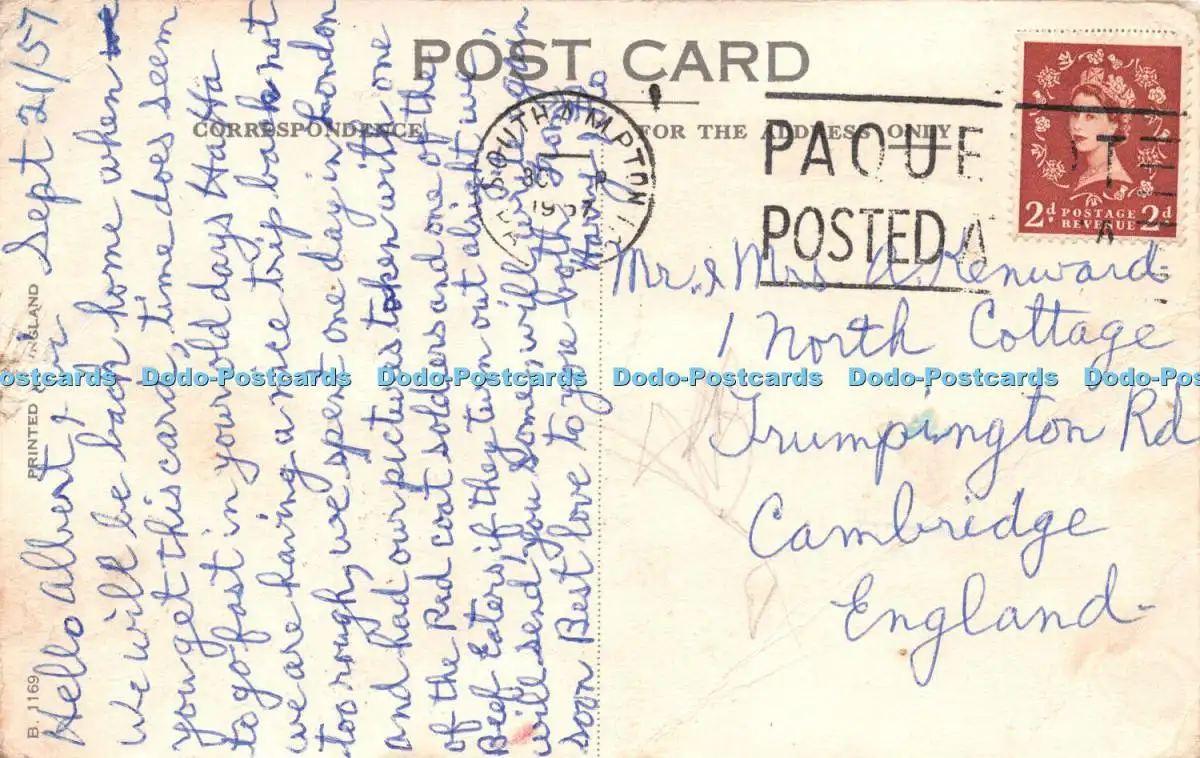 POST CARD
CORRESPONDENCE
FOR THE ADDRESS ONLY
PRINTED ENGLAND
B. 1169
SOUTHAMPTON
1957
PAQUE T
POSTED A
2d POSTAGE 2d
REVENUE
Sept 21/57
Hello Albert,
We will be back home when
you get this card, time does seem
to go fast in your old days Ha Ha
we are having a nice trip back not
too rough, we spent one day in London
and had our pictures taken with one
of the Red coat solders and one of the
Beef Eaters, if they turn out alright we
will send you some, will write again
soon Best love to you both from
Harry
Mr. & Mrs A. Kenward
1 North Cottage
Trumpington Rd
Cambridge
England
Dodo-Postcards Dodo-Postcards Dodo-Postcards Dodo-Postcards Dodo-Postcards